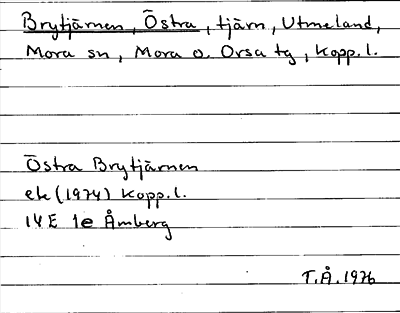 Brytjärnen, Östra, tjärn, Utmeland,
Mora sn, Mora o. Orsa tg, Kopp. l.
Östra Brytjärnen
ek (1974) Kopp. l.
14E 1e Åmberg
T.Å. 1976